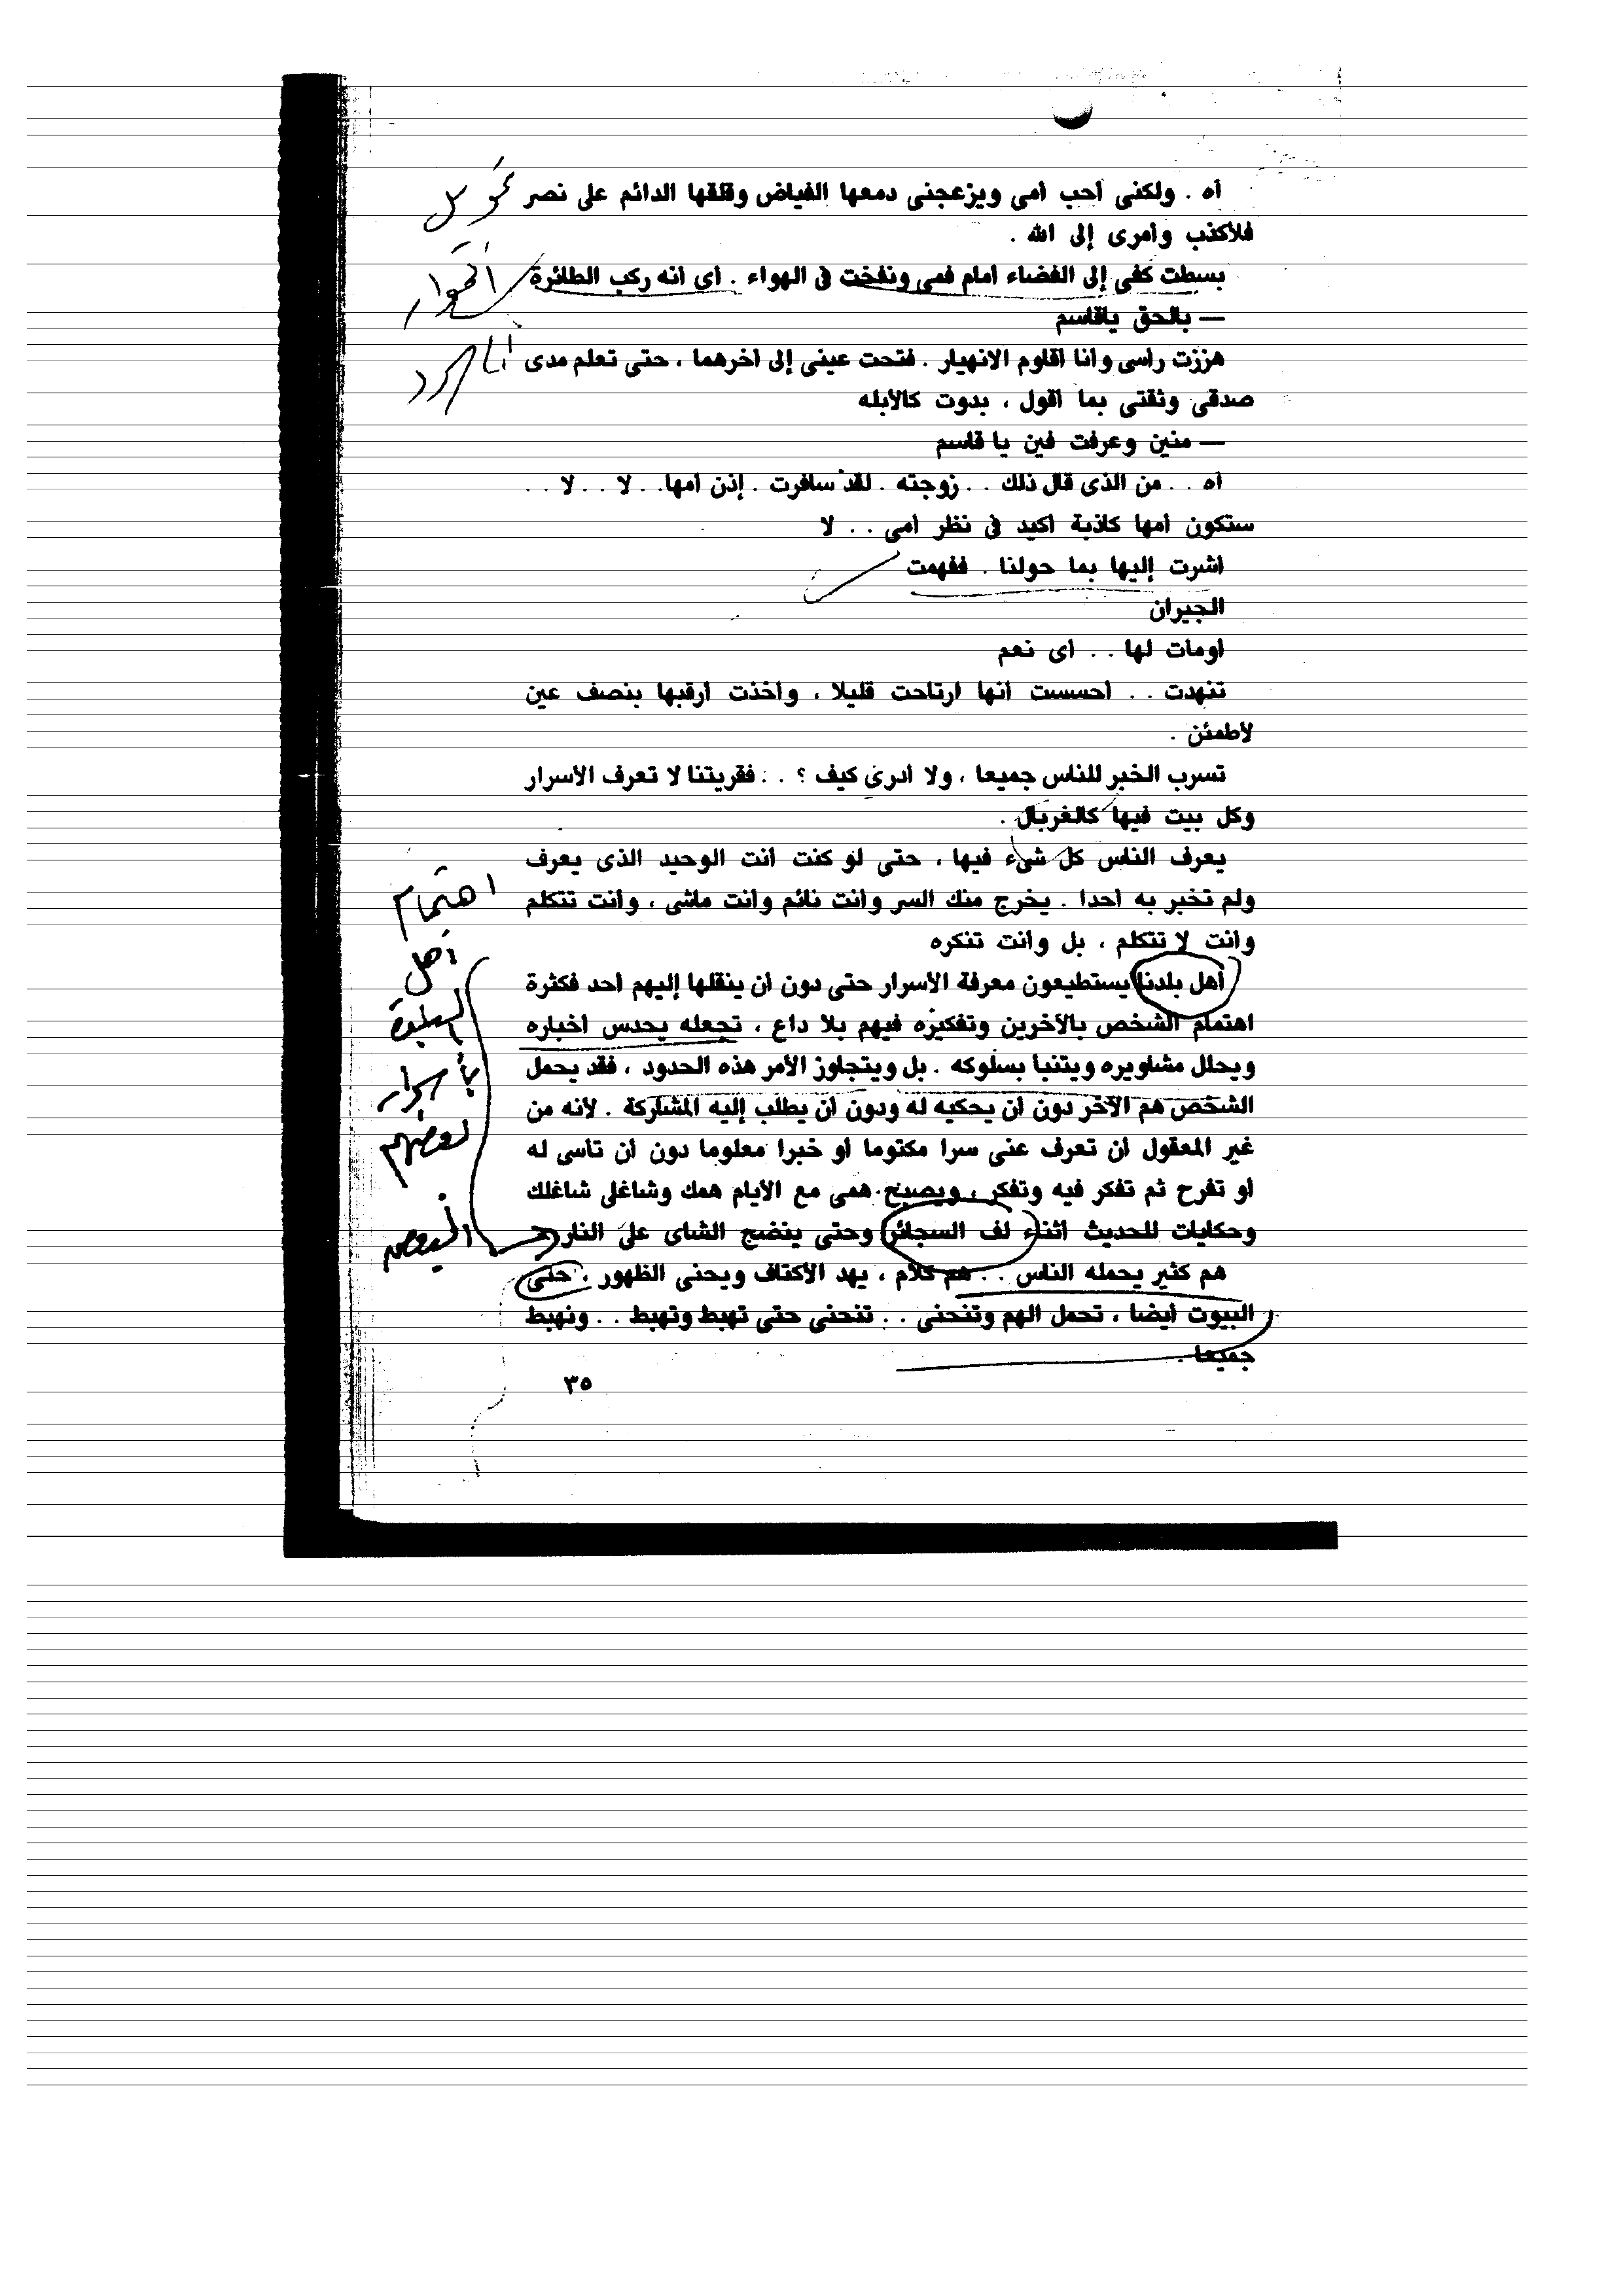 أه . ولكنى أحب أمى ويزعجنى دمعها الفياض وقلقها الدائم على نصر
فلأكذب وأمرى إلى الله .
بسطت كفى إلى الفضاء أمام فمى ونفخت فى الهواء . أى أنه ركب الطائرة
— بالحق ياقاسم
هززت رأسى وأنا أقاوم الانهيار . فتحت عينى إلى أخرهما ، حتى تعلم مدى
صدقى وثقتى بما أقول ، بدوت كالأبله
— منين وعرفت فين يا قاسم
أه . . من الذى قال ذلك . . زوجته . لقد سافرت . إذن أمها. . لا . . لا . .
ستكون أمها كاذبة أكيد فى نظر أمى . . لا
أشرت إليها بما حولنا . ففهمت
الجيران
أومأت لها . . أى نعم
تنهدت . . أحسست أنها ارتاحت قليلا ، وأخذت أرقبها بنصف عين
لأطمئن .
تسرب الخبر للناس جميعا ، ولا أدرى كيف ؟ . . فقريتنا لا تعرف الأسرار
وكل بيت فيها كالغربال .
يعرف الناس كل شىء فيها ، حتى لو كنت أنت الوحيد الذى يعرف
ولم تخبر به أحدا . يخرج منك السر وأنت نائم وأنت ماشى ، وأنت تتكلم
وأنت لا تتكلم ، بل وأنت تنكره
أهل بلدنا يستطيعون معرفة الأسرار حتى دون أن ينقلها إليهم أحد فكثرة
اهتمام الشخص بالآخرين وتفكيره فيهم بلا داع ، تجعله يحدس أخباره
ويحلل مشاويره ويتنبأ بسلوكه . بل ويتجاوز الأمر هذه الحدود ، فقد يحمل
الشخص هم الآخر دون أن يحكيه له ودون أن يطلب إليه المشاركة . لأنه من
غير المعقول أن تعرف عنى سرا مكتوما أو خبرا معلوما دون أن تأسى له
أو تفرح ثم تفكر فيه وتفكر ، ويصبح همى مع الأيام همك وشاغلى شاغلك
وحكايات للحديث أثناء لف السجائر وحتى ينضج الشاى على النار .
هم كثير يحمله الناس . . هم كلام ، يهد الأكتاف ويحنى الظهور ، حتى
البيوت أيضا ، تحمل الهم وتنحنى . . تنحنى حتى تهبط وتهبط . . ونهبط
جميعا .
٣٥
اهتمام
أهل
البلدة
بأسرار
بعضهم
البعض